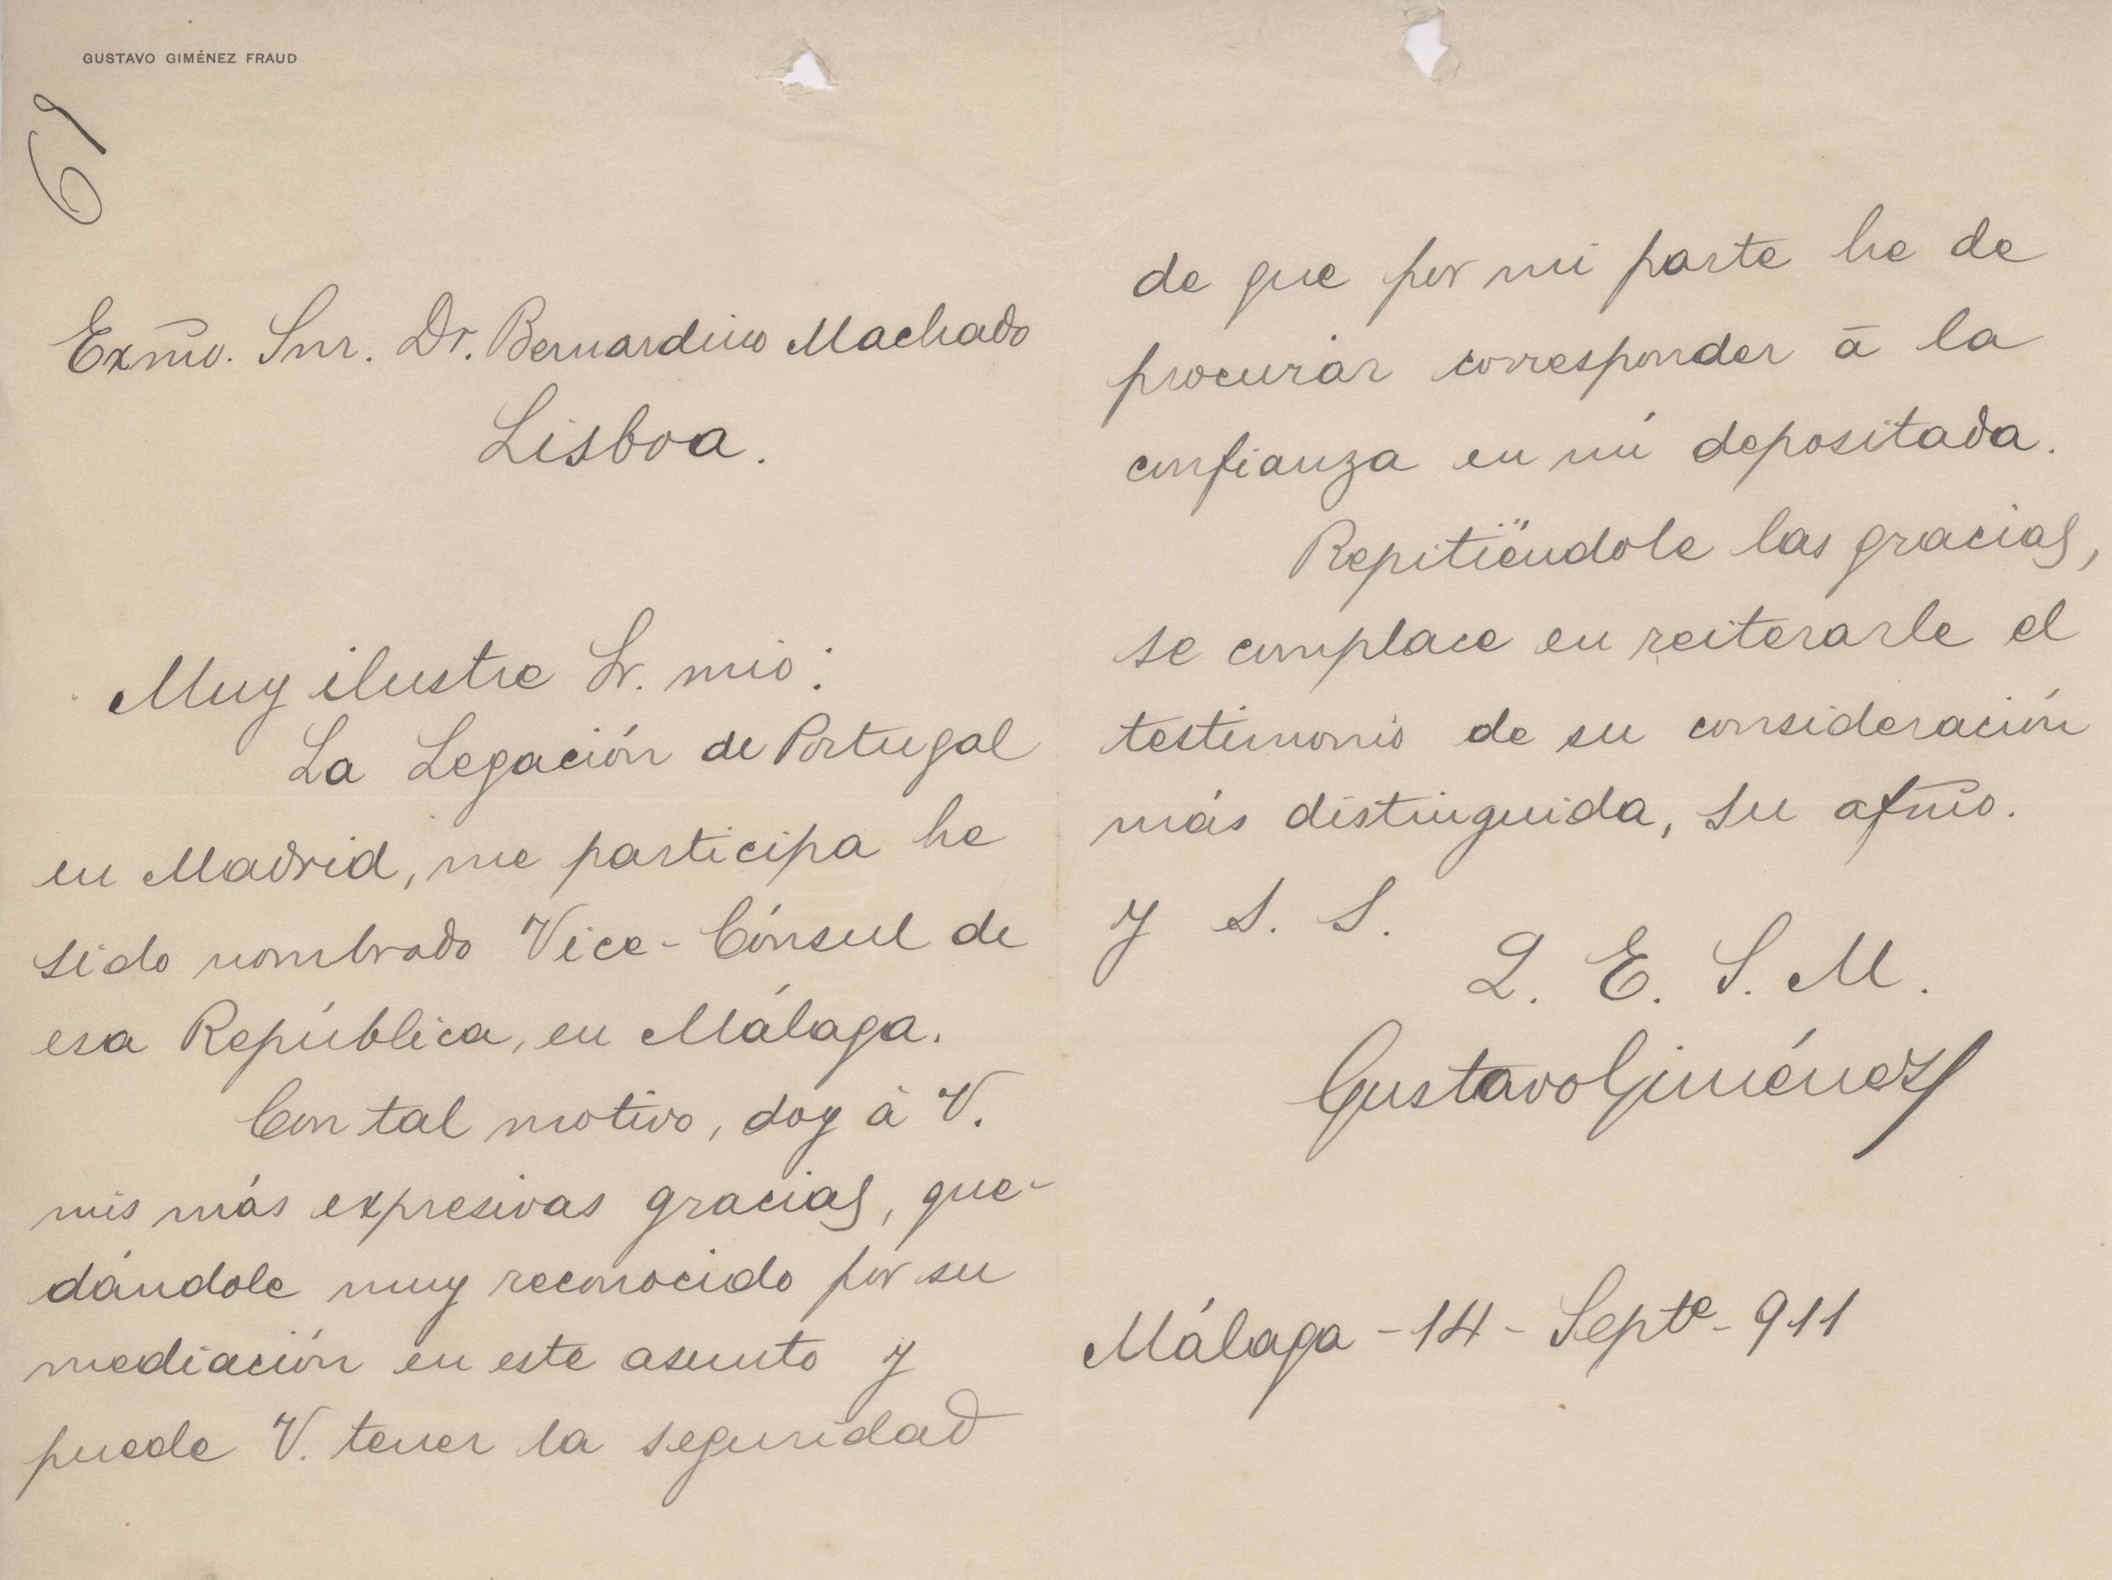 GUSTAVO GIMÉNEZ FRAUD
61
Exmo. Snr. Dr. Bernardino Machado
Lisboa.
Muy ilustre Sr. mio:
La Legación de Portugal
en Madrid, me participa he
sido nombrado Vice-Cónsul de
esa República, en Málaga.
Con tal motivo, doy á V.
mis más expresivas gracias, que-
dándole muy reconocido por su
mediación en este asunto y
puede V. tener la seguridad
de que por mi parte he de
procurar corresponder á la
confianza en mí depositada.
Repitiéndole las gracias,
se complace en reiterarle el
testimonio de su consideración
más distinguida, su afmo.
y S. S.
Q. E. S. M.
Gustavo Giménez
Málaga - 14 - Septe - 911